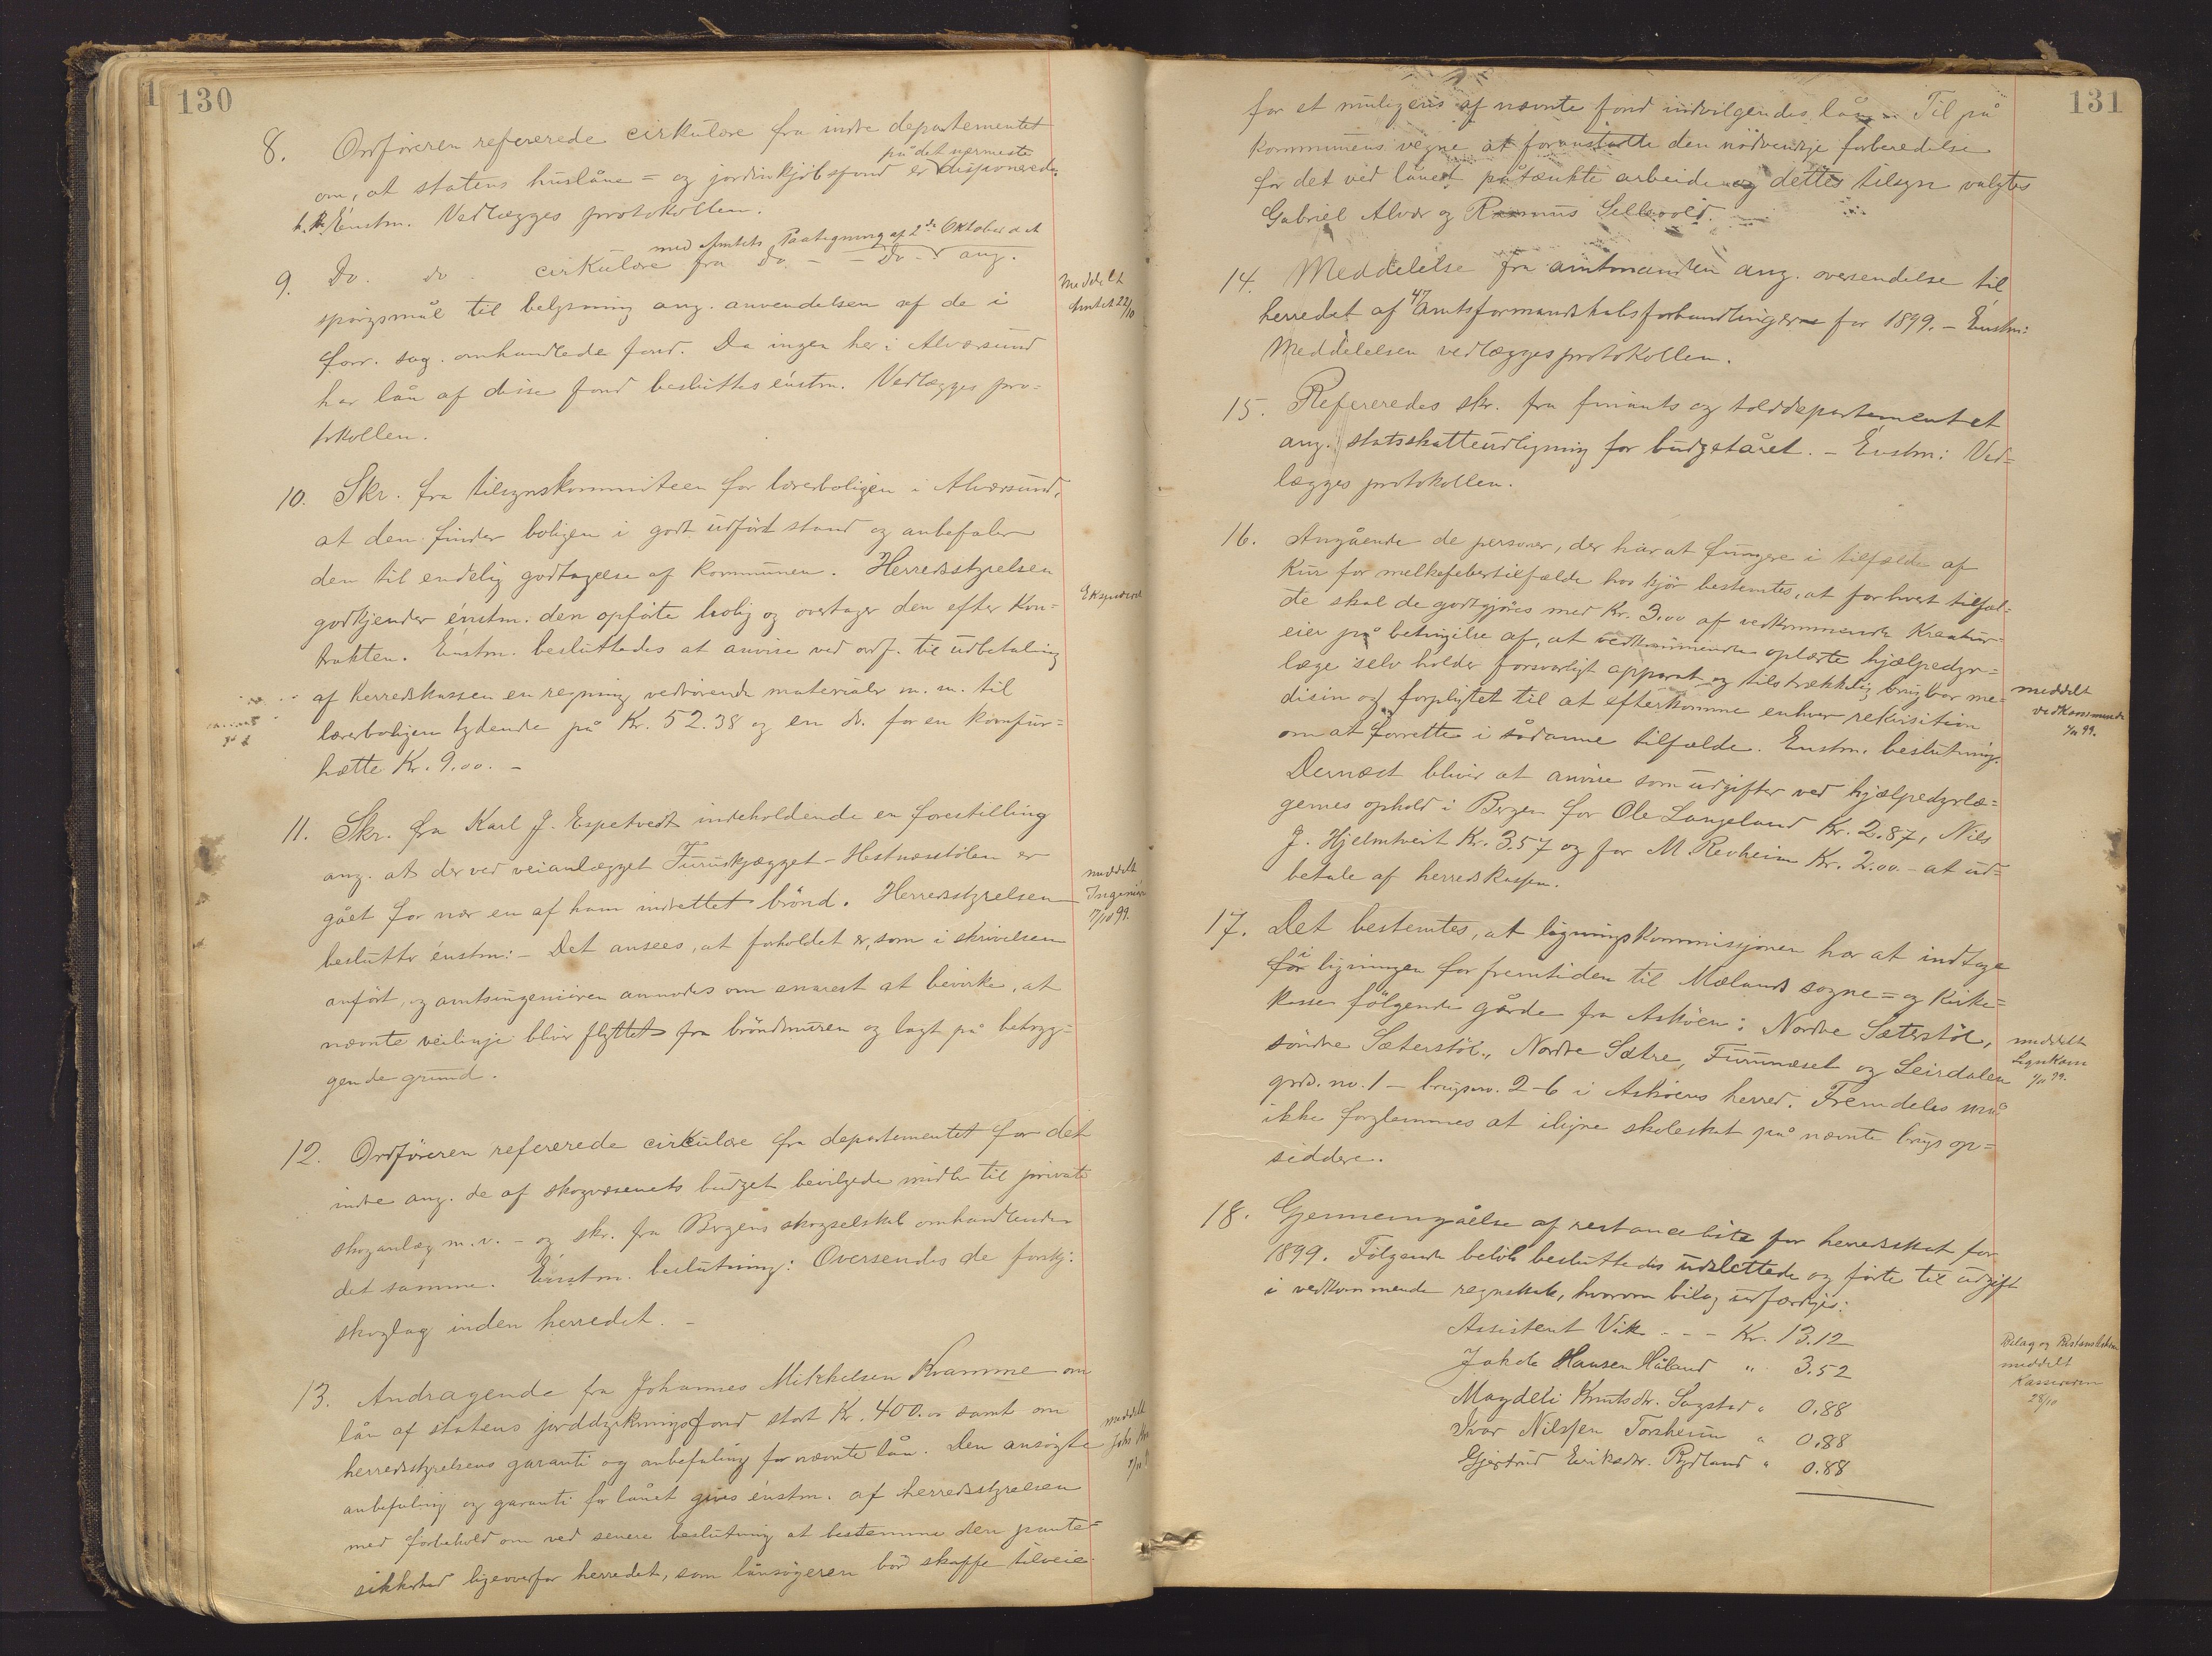 130
8. Ordföreren refererede cirkulære fra indre departementet
om, at statens huslåne= og jordindkjöbsfond er på det nærmeste disponerede.
Énstm. Vedlægges protokollen.
med Amtets Paategning af 2de Oktober d. A
9. Do. do. cirkulære fra do. - - do - ang.
spörgsmål til belysning ang. anvendelsen af de i
forr. sag. omhandlede fond. Da ingen her i Alværsund
har lån af disse fond besluttes énstm. Vedlægges pro=
tokollen.
Meddelt
Amtet 22/10
10. Skr. fra tilsynskommiteen for lærerboligen i Alværsund,
at den finder boligen i godt udfört stand og anbefaler
den til endelig godtagelse af kommunen. Herredsstyrelsen
godkjender énstm. den opförte bolig og overtager den efter Kon=
trakten. Énstm. besluttedes at anvise ved ordf. til udbetaling
af herredskassen en regning vedrörende materialer m. m. til
lærerboligen lydende på Kr. 52.38 og en do. for en komfur=
hætte Kr. 9.00. -
Ekspederet
11. Skr. fra Karl J. Espetvedt indeholdende en forestilling
ang. at der ved veianlægget Furuskjægget - Hestnesstölen er
gået for nær en af ham indrettet brönd. Herredsstyrelsen
beslutter énstm: - Det ansees, at forholdet er, som i skrivelsen
anfört, og amtsingeniören anmodes om snarest at bevirke, at
nævnte veilinje bliver flyttet fra bröndmuren og lagt på betryg=
gende grund.
meddelt
Ingeniör
7/10 99.
12. Ordföreren refererede cirkulære fra departementet for det
indre ang. de af skogvæsenets budget bevilgede midler til private
skoganlæg m. v. - og skr. fra Bergens skogselskab omhandlende
det samme. Énstm. beslutning: Oversendes de forskj:
skoglag inden herredet. -
13. Andragende fra Johannes Mikkelsen Kvamme om
lån af statens jorddyrkningsfond stort Kr. 400.00 samt om
herredsstyrelsens garanti og anbefaling for nævnte lån. Den ansögte
anbefaling og garanti for lånet gives énstm. af herredsstyrelsen
med forbehold om ved senere beslutning at bestemme den pante=
sikkerhed ligeoverfor herredet, som lånsögeren bör skaffe tilveie
meddelt
131
for et muligens af nævnte fond indvilgendes lån. Til på
kommunens vegne at foranstalte den nödvendige forberedelse
for det ved lånet påtænkte arbeide og dettes tilsyn valgtes
Gabriel Alvær og Rasmus Sellevold.
14. Meddelelse fra amtmanden ang. oversendelse til
herredet af 47 Amtsformandskabsforhandlingerne for 1899. - Énstm:
Meddelelsen vedlægges protokollen.
15. Refereredes skr. fra finants og tolddepartementet
ang. statsskatteudligning for budgetåret. - Énstm: Ved=
lægges protokollen.
16. Angående de personer, der har at fungere i tilfælde af
Kur for melkefebertilfælde hos kjör bestemtes, at for hvert tilfæl=
de skal de godtgjöres med Kr. 3.00 af vedkommende Kreatur=
eier på betingelse af, at vedkommende oplærte hjælpedyr=
læge selv holder forsvarligt apparat og tilstrækkelig brugbar me=
disin og forpligtet til at efterkomme enhver rekvisition
om at forrette i sådanne tilfælde. Enstm. beslutning.
Dernæst bliver at anvise som udgifter ved hjælpedyrlæ=
gernes ophold i Bergen for Ole Langeland Kr. 2.87, Nils
J. Hjelmtveit Kr. 3.57 og for M. Revheim Kr. 2.00. - at ud=
betale af herredskassen.
meddelt
vedkommende
4/11 99.
17. Det bestemtes, at ligningskommissjonen har at indtage
for i ligningen for fremtiden til Mælands sogne= og Kirke=
kasse fölgende gårde fra Asköen: Nordre Sæterstöl,
söndre Sæterstöl., Nordre Sætre, Furunæset og Leirdalen
grds. no. 1 - brugsno. 2-6 i Asköens herred. Fremdeles må
ikke forglemmes at iligne skoleskat på nævnte brugs op=
siddere.
meddelt
Lignkom
4/11 99.
18. Gjennemgåelse af restanceliste for herredsskat for
1899. Fölgende belöb besluttedes udslettede og förte til udgift
i vedkommende regnskab, hvorom bilag udfærdiges:
Assistent Vik - - - Kr. 13.12
Jakob Hansen Håland " 3.52
Magdeli Knutsdtr. Sagstad " 0.88
Ivar Nilssen Torsheim " 0.88
Gjertrud Eriksdtr. Rydland " 0.88
Bilag og Restancelisten
meddelt
Kassereren
28/10